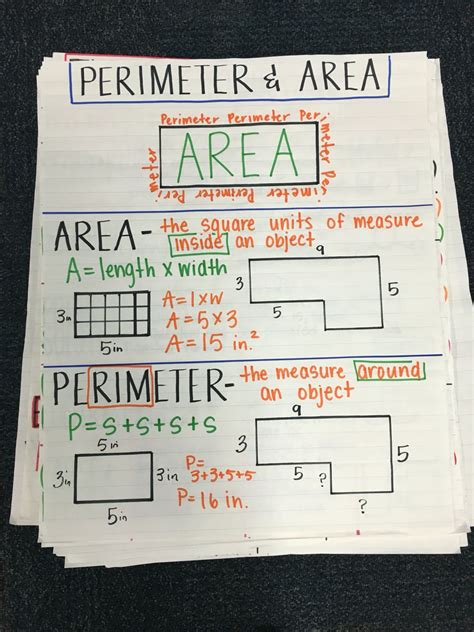 PERIMETER & AREA
Perimeter Perimeter Perimeter Perimeter Perimeter Perimeter
AREA
AREA- the square units of measure
inside an object
A = length x width
3in
5in
A = l x w
A = 5 x 3
A = 15 in.²
9
3
5
5
PERIMETER- the measure around
an object
P = S + S + S + S
5 in
3in
3 in
5in
P=
3+3+5+5
P= 16 in.
9
3
5
5
?
?